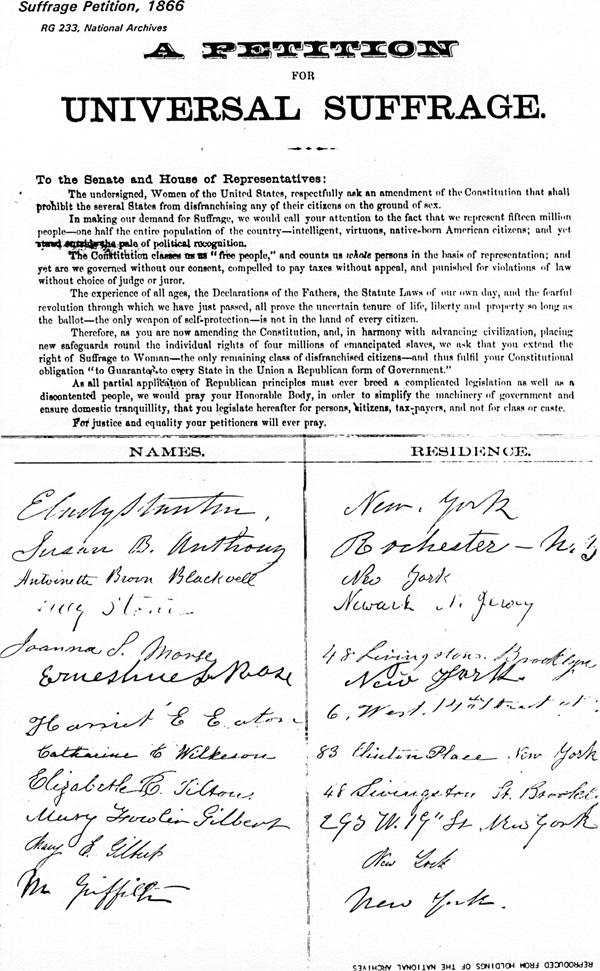 Suffrage Petition, 1866
RG 233, National Archives
A PETITION
FOR
UNIVERSAL SUFFRAGE.
To the Senate and House of Representatives:
The undersigned, Women of the United States, respectfully ask an amendment of the Constitution that shall
prohibit the several States from disfranchising any of their citizens on the ground of sex.
In making our demand for Suffrage, we would call your attention to the fact that we represent fifteen million
people—one half the entire population of the country—intelligent, virtuous, native-born American citizens; and yet
stand outside the pale of political recognition.
The Constitution classes us as "free people," and counts us whole persons in the basis of representation; and
yet are we governed without our consent, compelled to pay taxes without appeal, and punished for violations of law
without choice of judge or juror.
The experience of all ages, the Declarations of the Fathers, the Statute Laws of our own day, and the fearful
revolution through which we have just passed, all prove the uncertain tenure of life, liberty and property so long as
the ballot—the only weapon of self-protection—is not in the hand of every citizen.
Therefore, as you are now amending the Constitution, and, in harmony with advancing civilization, placing
new safeguards round the individual rights of four millions of emancipated slaves, we ask that you extend the
right of Suffrage to Woman—the only remaining class of disfranchised citizens—and thus fulfil your Constitutional
obligation "to Guarantee to every State in the Union a Republican form of Government."
As all partial application of Republican principles must ever breed a complicated legislation as well as a
discontented people, we would pray your Honorable Body, in order to simplify the machinery of government and
ensure domestic tranquillity, that you legislate hereafter for persons, citizens, tax-payers, and not for class or caste.
For justice and equality your petitioners will ever pray.
NAMES. RESIDENCE.
E Cady Stanton, New. York
Susan B. Anthony Rochester – N.Y
Antoinette Brown Blackwell New York
Lucy Stone Newark N. Jersey
Joanna S. Morse 48 Livingston. Brooklyn
Ernestine L Rose New York
Harriet E Eaton 6. West. 14th Street
Catharine C Wilkeson 83 Clinton Place New York
Elizabeth R. Tilton. 48 Livingston St.
Mary Fowler Gilbert 293 W. 19" St. New York
Mary E. Gilbert New York
M Griffith New York.
REPRODUCED FROM HOLDINGS OF THE NATIONAL ARCHIVES